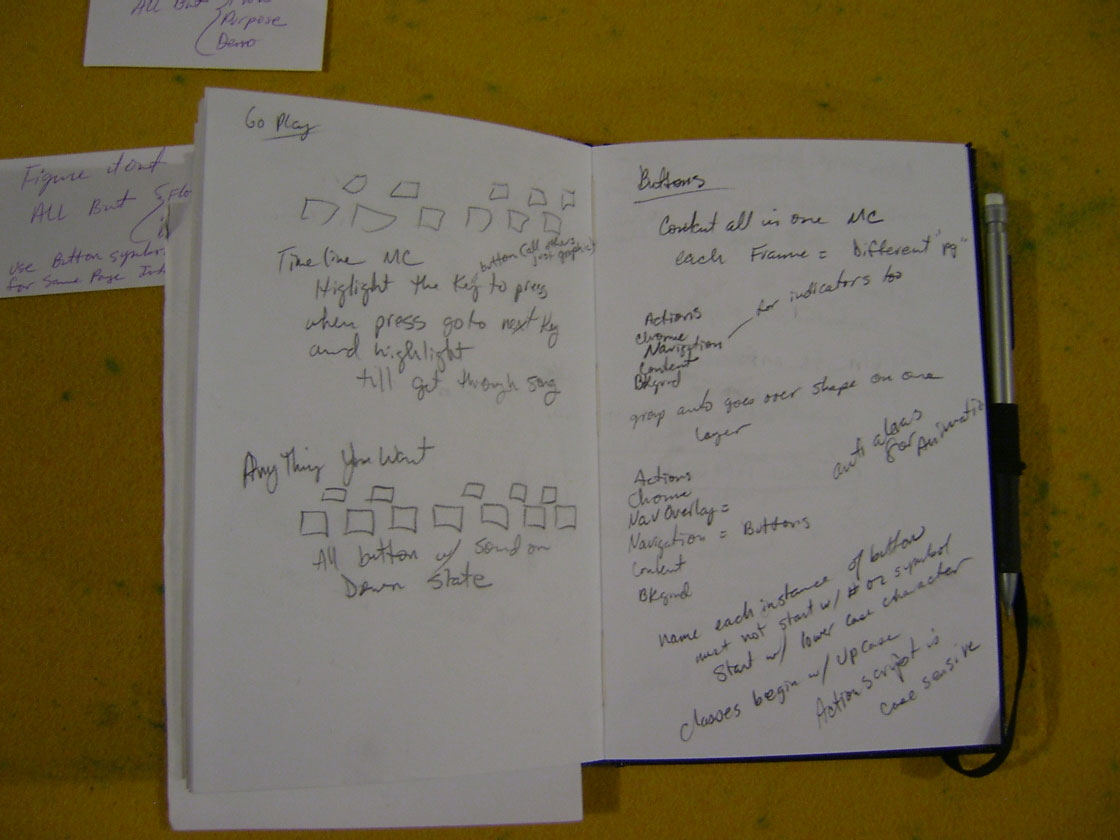 All But
Purpose
Demo
Figure it out
ALL But { Flo
use Button symbol
for Same Page
Go Play
Timeline MC
button (all others
just graphic)
Higlight the Key to press
when press goto next key
and highlight
till get through song
Any Thing You Want
All button w/ sound on
Down State
Buttons
Content all in one MC
each Frame = Different "pg"
for indicators too
Actions
Chrome
Navigation
Content
Bkgrnd
group auto goes over shape on one
layer
anti alias
for Animatio
Actions
Chrome
Nav Overlay =
Navigation = Buttons
Content
Bkgrnd
name each instance of button
must not start w/ # or symbol
Start w/ lower case character
classes begin w/ Upcase
Actionscript is
case sensive